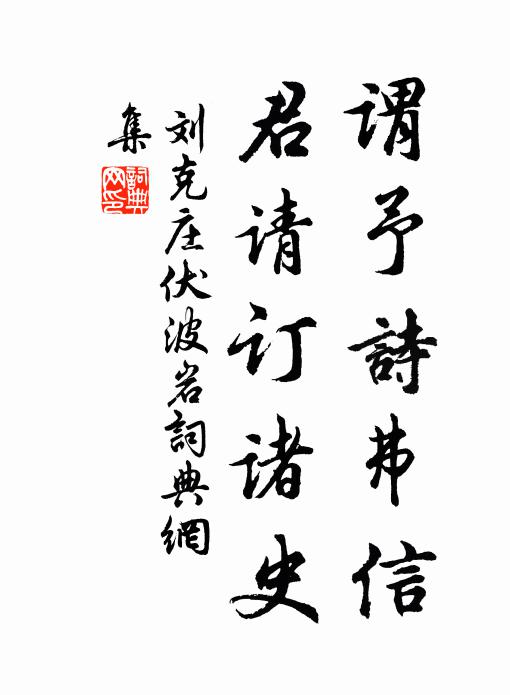 谓予诗弗信
君请订诸史
刘克庄伏波岩词典網
集
詞典网印